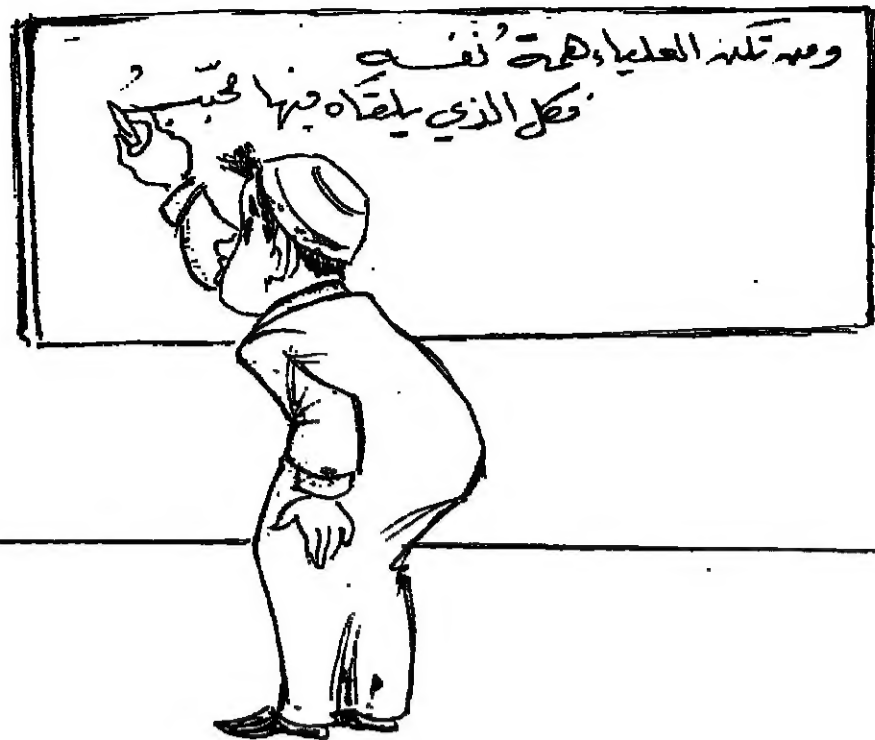 ومن تكن العلياء همة نفسه
فكل الذي يلقاه فيها محبّبُ